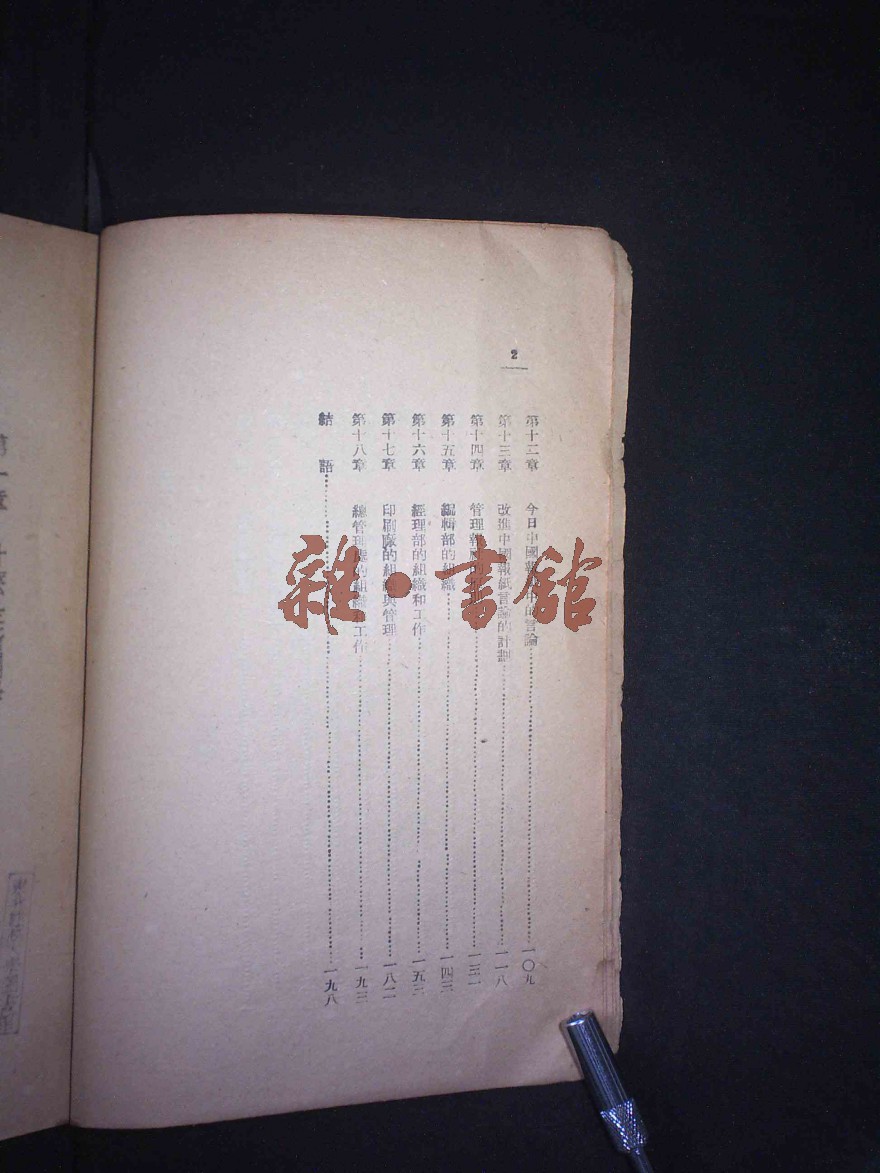 2
第十二章 今日中國報紙的言論……一〇九
第十三章 改進中國報紙言論的計劃……一一八
第十四章 管理……一三一
第十五章 編輯部的組織……一四三
第十六章 經理部的組織和工作……一五三
第十七章 印刷廠的組織與管理……一八二
第十八章 總管理處的組織和工作……一九三
結語……一九八
雜·書館
第一章